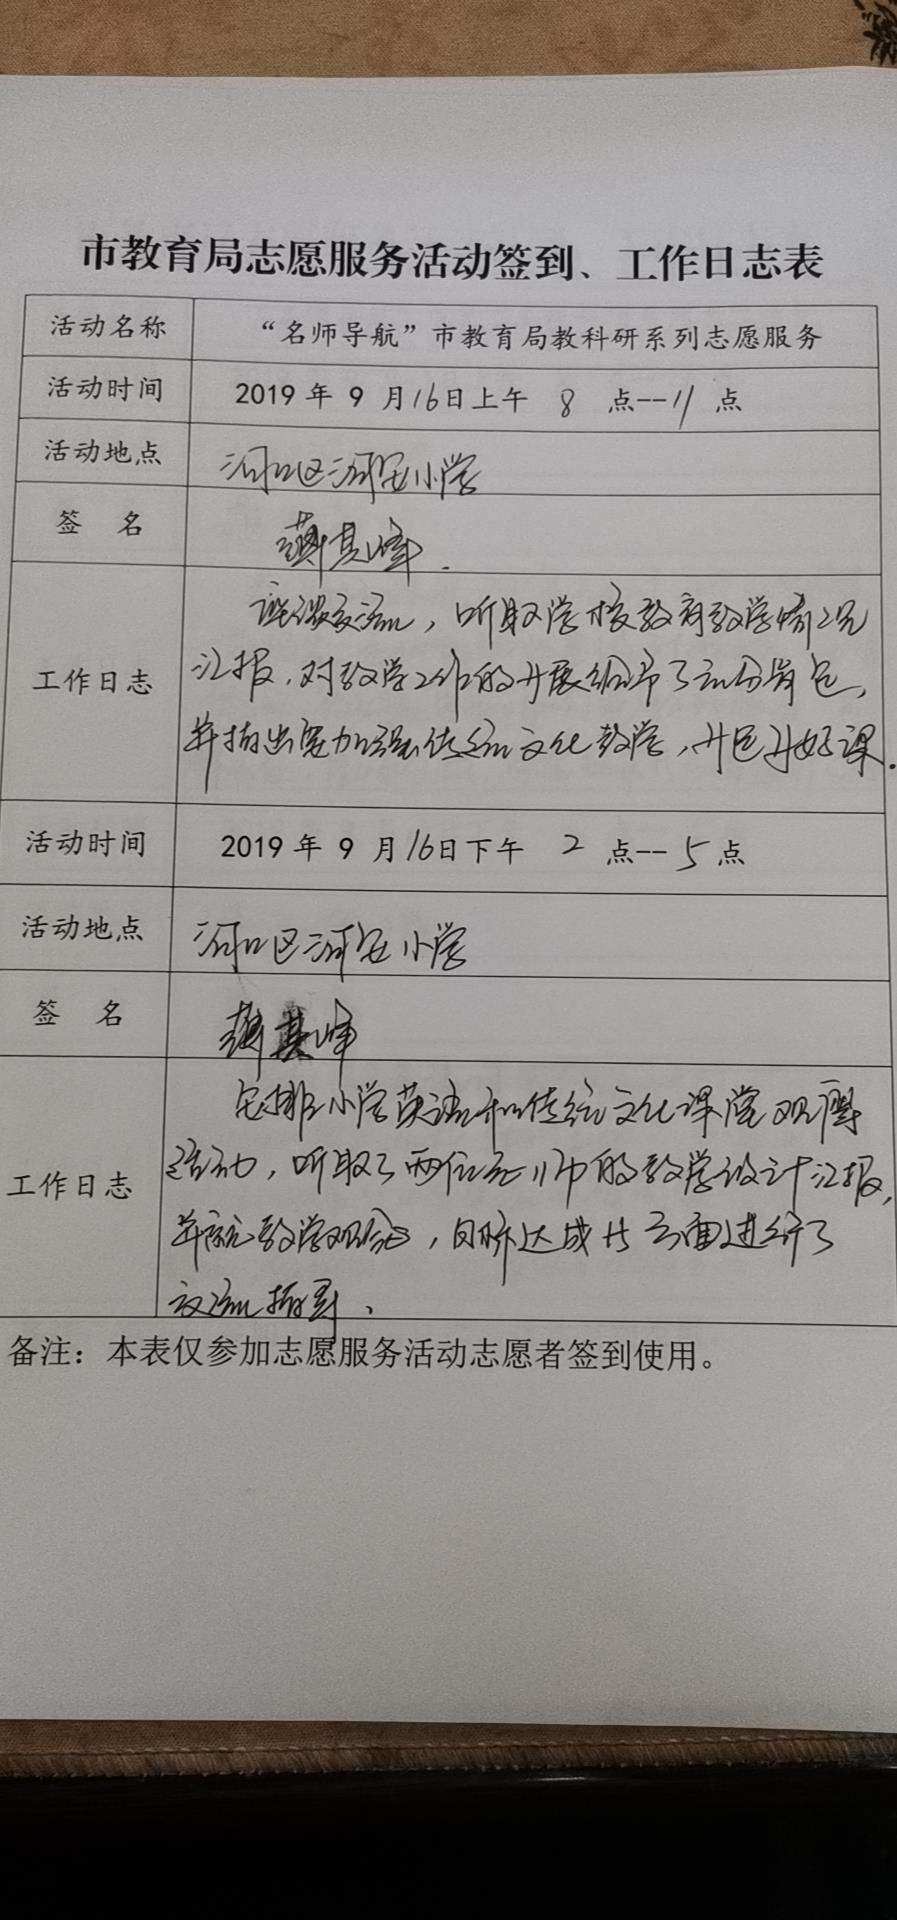 市教育局志愿服务活动签到、工作日志表
活动名称 “名师导航”市教育局教科研系列志愿服务
活动时间 2019 年 9 月16日上午 8 点--11 点
活动地点 河口区河安小学
签 名 其峰
工作日志
座谈交流，听取学校教育教学情况
汇报，对教学工作的开展给予了充分肯定，
并指出要加强传统文化教学，开足开好课.
活动时间 2019 年 9 月16日下午 2 点--5点
活动地点 河口区河安小学
签 名 其峰
工作日志
安排小学英语和传统文化课堂观摩
活动，听取了两位老师的教学设计汇报，
并就教学观念，目标达成等方面进行了
交流指导、
备注：本表仅参加志愿服务活动志愿者签到使用。